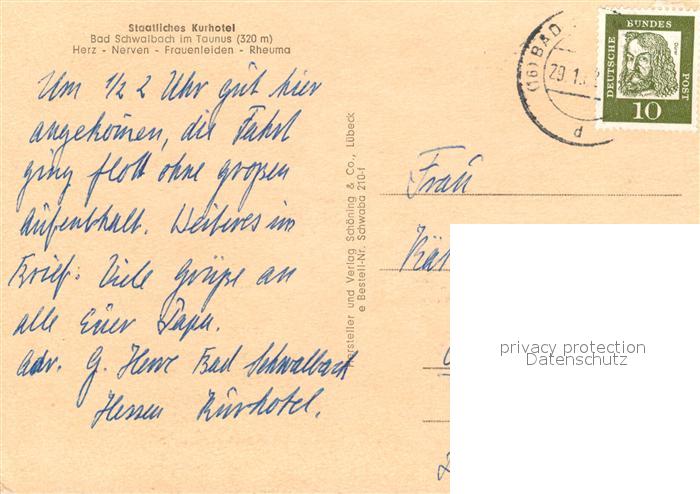 Staatliches Kurhotel
Bad Schwalbach im Taunus (320 m)
Herz - Nerven - Frauenleiden - Rheuma
Um ½ 2 Uhr gut hier
angekommen, die Fahrt
ging flott ohne großen
Aufenthalt. Weiteres im
Brief. Viele Grüße an
alle Euer Papa.
Adr. G. Bad Schwalbach
Hessen Kurhotel.
Hersteller und Verlag Schöning & Co., Lübeck
Bestell-Nr. Schwaba 210-f
(16) BAD
29.1.
d
DEUTSCHE BUNDES POST
Dürer
10
Frau
Kät
privacy protection
Datenschutz